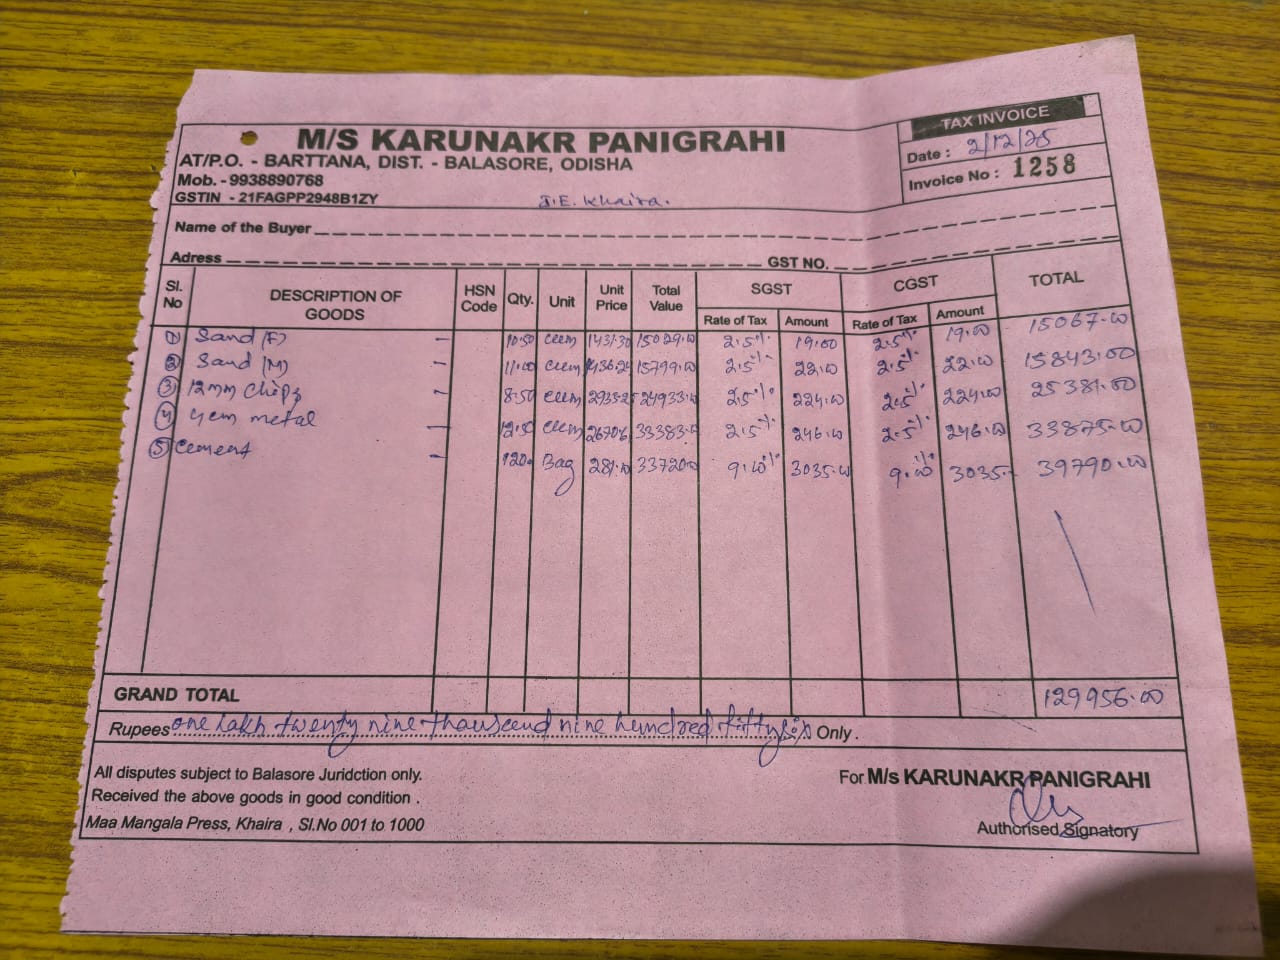 TAX INVOICE
M/S KARUNAKR PANIGRAHI
Date : 2/12/25
AT/P.O. - BARTTANA, DIST. - BALASORE, ODISHA
Invoice No : 1258
Mob. - 9938890768
GSTIN - 21FAGPP2948B1ZY
J.E. Khaira.
Name of the Buyer
Adress GST NO.
Sl. No DESCRIPTION OF GOODS HSN Code Qty. Unit Unit Price Total Value SGST CGST TOTAL
Rate of Tax Amount Rate of Tax Amount
1 Sand (F) - 10.50 cum 1431.30 15029.00 2.5% 19.00 2.5% 19.00 15067.00
2 Sand (M) - 11.00 cum 1436.2 15799.00 2.5% 22.00 2.5% 22.00 15843.00
3 12mm chips - 8.50 cum 2933.25 24933.00 2.5% 224.00 2.5% 224.00 25381.00
4 4cm metal - 12.50 cum 2670.6 33383.00 2.5% 246.00 2.5% 246.00 33875.00
5 Cement - 120 Bag 281.00 33720.00 9.00% 3035.00 9.00% 3035.- 39790.00
GRAND TOTAL 129956.00
Rupees one lakh twenty nine thousend nine hundred fiftysix Only .
All disputes subject to Balasore Juridction only.
For M/s KARUNAKR PANIGRAHI
Received the above goods in good condition .
Maa Mangala Press, Khaira , Sl.No 001 to 1000
Authorised Signatory